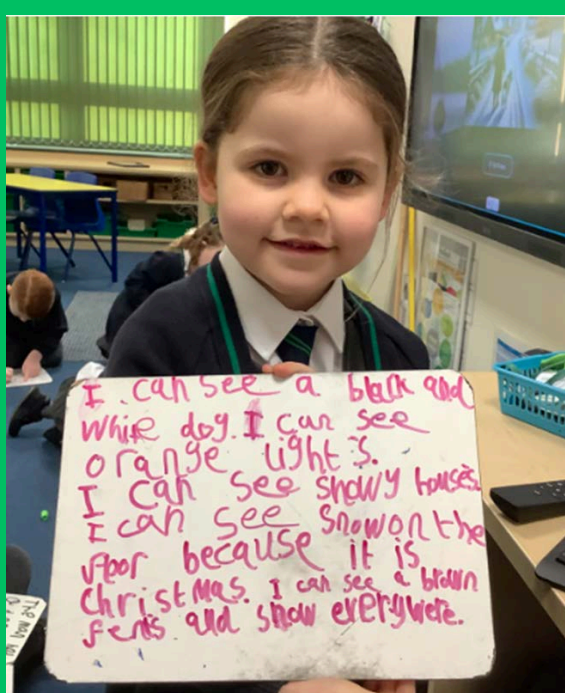 I can see a black and
white dog. I can see
orange light s.
I can see snowy houses.
I can see snow on the
floor because it is
christmas. I can see a brown
fens and snow everywere.
THE MAN